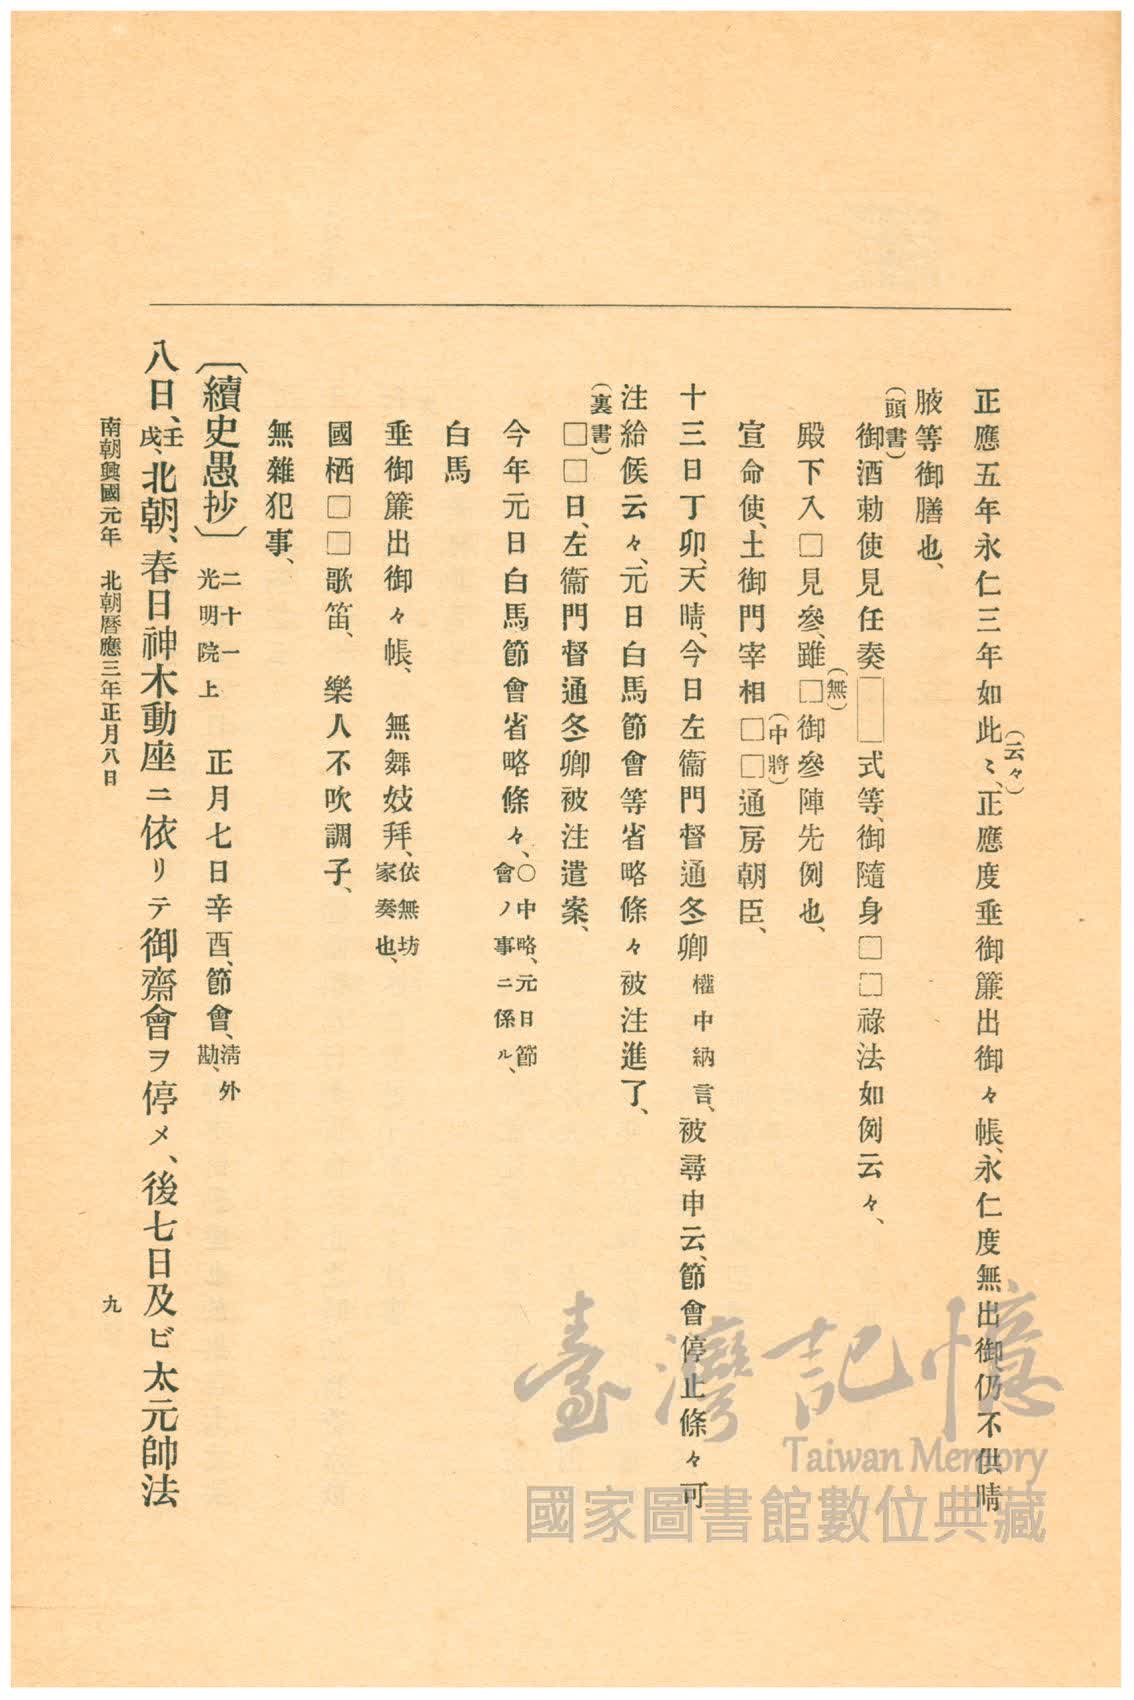 正應五年永仁三年如此〻、(云々)正應度垂御簾出御々帳、永仁度無出御、仍不供晴
腋等御膳也、
(頭書)
御酒勅使見任奏□式等、御隨身□□祿法如例云々、
殿下入□見參、雖□(無)御參陣先例也、
宣命使、土御門宰相□□(中將)通房朝臣、
十三日丁卯、天晴、今日左衞門督通冬卿權中納言、被尋申云、節會停止條々可
注給候云々、元日白馬節會等省略條々被注進了、
(裏書)
□□日、左衞門督通冬卿被注遣案、
今年元日白馬節會省略條々、○中略、元日節會ノ事ニ係ル、
白馬
垂御簾出御々帳、 無舞妓拜、依無坊家奏也、
國栖□□歌笛、 樂人不吹調子、
無雜犯事、
〔續史愚抄〕二十一光明院上 正月七日辛酉、節會、淸外勘、
八日、壬戌、北朝、春日神木動座ニ依リテ御齋會ヲ停メ、後七日及ビ太元帥法
南朝興國元年 北朝曆應三年正月八日
九
臺灣記憶
Taiwan Memory
國家圖書館數位典藏